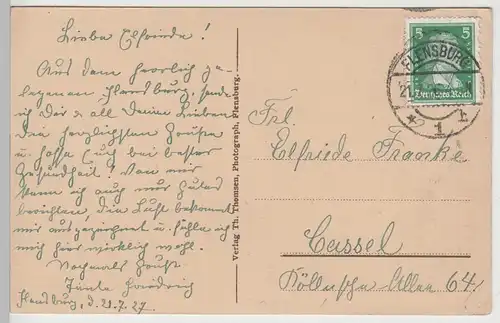 Liebe Elfriede!
Aus dem herrlich ge-
legenen Flensburg, sende
ich Dir & all Deine Lieben
die herzlichsten Grüße
u. hoffe Euch bei bester
Gesundheit! Von mir
kann ich auch nur Gutes
berichten, die Luft bekommt
mir ausgezeichnet u. fühle ich
mich hier wirklich wohl.
Nochmals Gruß
Tante Friedrich
Flensburg, d. 21.7.27.
Verlag Th. Thomsen, Photograph, Flensburg.
5 5
Deutsches Reich
FLENSBURG
21
* 1
Frl.
Elfriede Franke
Cassel
Köllnische Allee 64.